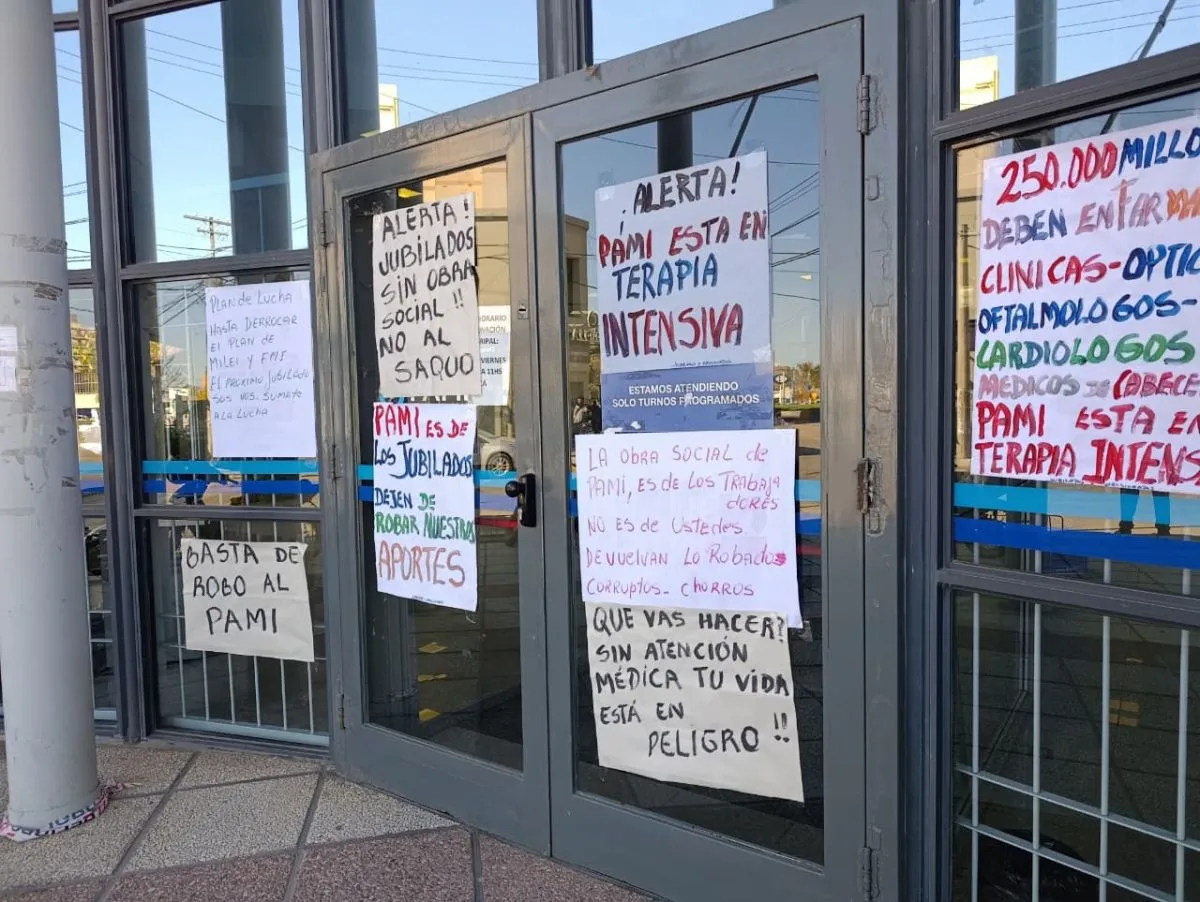 PLAN de LUCHA
HASTA DERROCAR
EL PLAN DE
MILEI Y FMI
EL PROXIMO JUBILADO
SOS VOS. SUMATE
A LA LUCHA
BASTA DE
ROBO AL
PAMI
ALERTA!
JUBILADOS
SIN OBRA
SOCIAL !!
NO AL
SAQUO
PAMI ES DE
LOS JUBILADOS
DEJEN DE
ROBAR NUESTROS
APORTES
HORARIO
¡ALERTA!
PAMI ESTA EN
TERAPIA
INTENSIVA
ESTAMOS ATENDIENDO
SOLO TURNOS PROGRAMADOS
LA OBRA SOCIAL de
PAMI, ES de LOS TRABAJA
DORES
NO ES de USTEDES
DEVUELVAN LO ROBADO
CORRUPTOS - CHORROS
QUE VAS HACER?
SIN ATENCIÓN
MÉDICA TU VIDA
ESTÁ EN
PELIGRO !!
250.000 MILLO
DEBEN EN FARMA
CLINICAS - OPTIC
OFTALMOLOGOS -
CARDIOLOGOS
MEDICOS DE CABECE
PAMI ESTA EN
TERAPIA INTENS